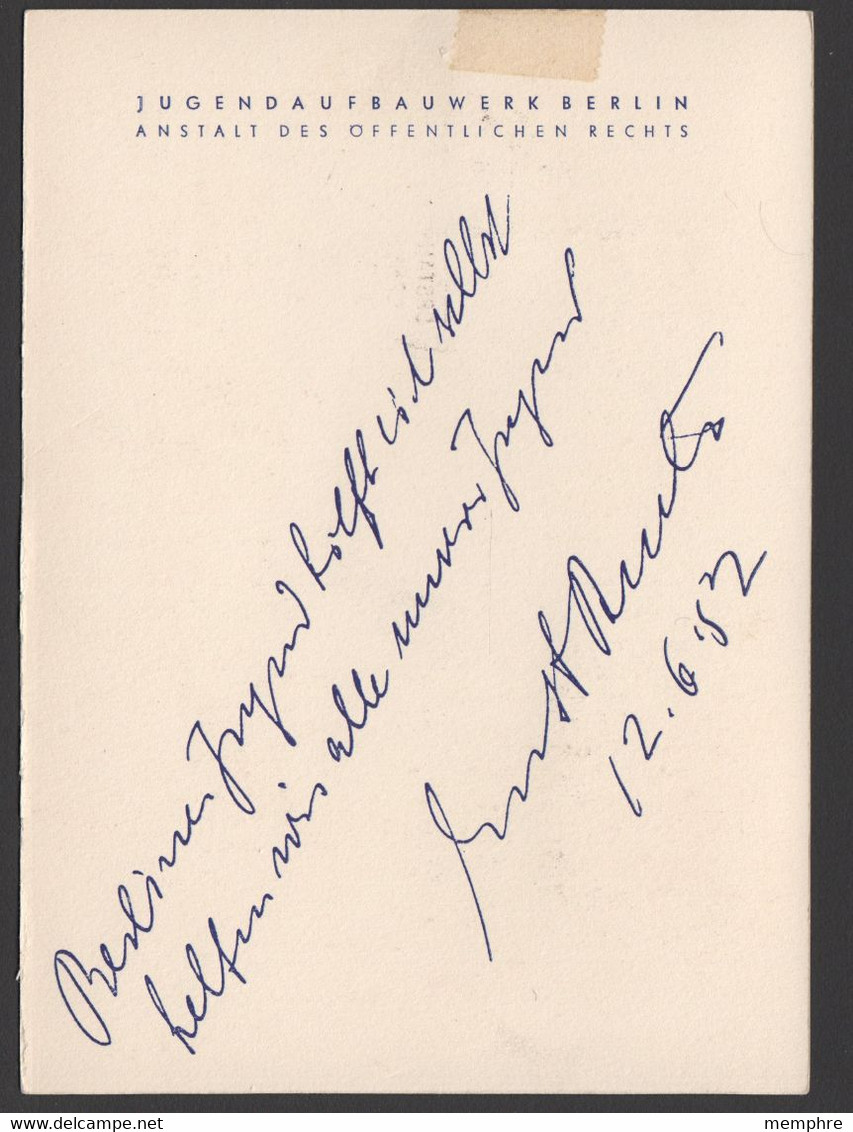 JUGENDAUFBAUWERK BERLIN
ANSTALT DES ÖFFENTLICHEN RECHTS
Berliner Jugend hilft sich selbst
helfen wir alle unserer Jugend
Ernst Reuter
12.6.52
delcampe.net
memphre